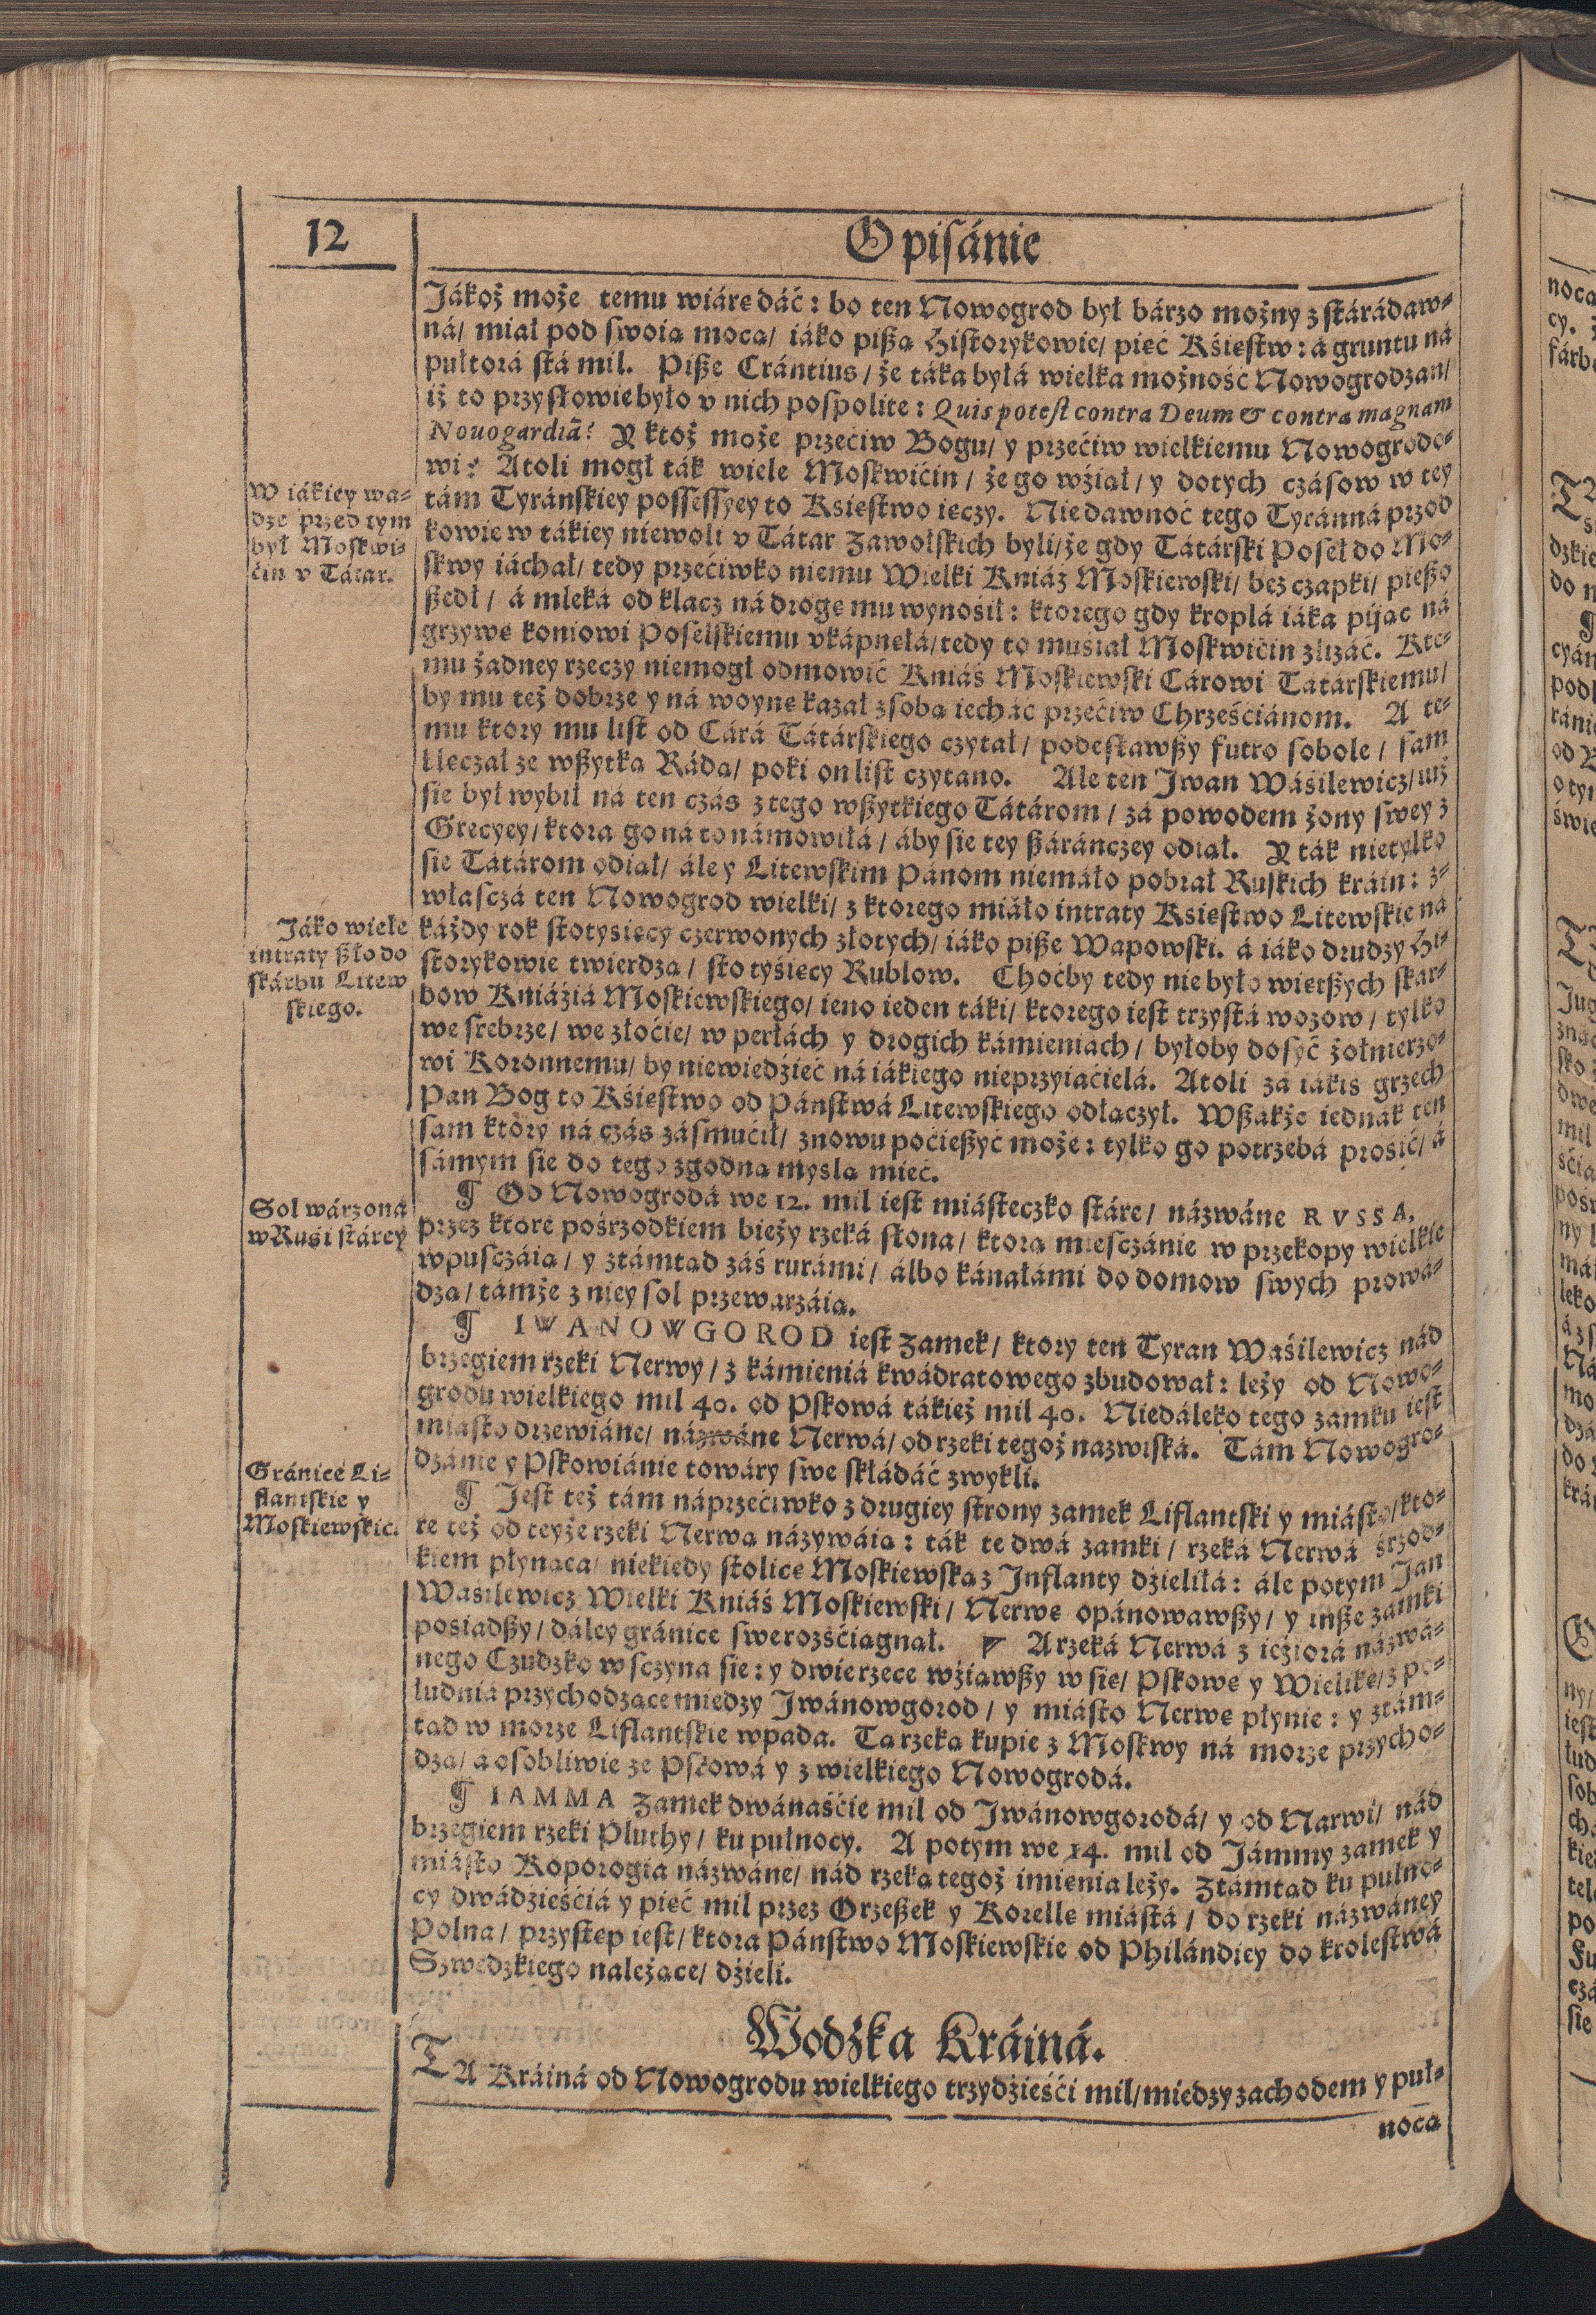 12
Opisánie
Jákoż może temu wiárę dáć: bo ten Nowogrod był bárzo możny z stárádaw⸗
ná/ miał pod swoią mocą/ iáko pißą Historykowie/ pięć Kśięstw: á gruntu ná
pułtorá stá mil. Piße Crántius/ że táka byłá wielka możność Nowogrodzan/
iż to przysłowie było v nich pospolite: Quis potest contra Deum & contra magnam
Nouogardiā? Y ktoż może przećiw Bogu/ y przećiw wielkiemu Nowogrodo⸗
wi? Atoli mogł ták wiele Moskwićin/ że go wźiął/ y dotych czásow w tey
W iákiey wa⸗
dze przed tym
był Moskwi⸗
ćin v Tátar.
tám Tyránskiey possessyey to Księstwo ięczy. Niedawnoć tego Tyránná przod
kowie w tákiey niewoli v Tátar Zawolskich byli/ że gdy Tátárski Poseł do Mo⸗
skwy iáchał/ tedy przećiwko niemu Wielki Kniáź Moskiewski/ bez czapki/ pießo
ßedł/ á mleká od klacz ná drogę mu wynośił: ktorego gdy kroplá iáka piiąc ná
grzywę koniowi Poselskiemu vkápnęłá/ tedy to muśiał Moskwićin zlizáć. Kte⸗
mu żadney rzeczy niemogł odmowić Kniáź Moskiewski Cárowi Tatárskiemu/
by mu też dobrze y ná woynę kazał z sobą iecháć przećiw Chrześćiánom. A te⸗
mu ktory mu list od Cárá Tátárskiego czytał/ podesławßy futro sobole/ sam
klęczał ze wßytką Rádą/ poki on list czytano. Ale ten Jwan Wáśilewicz/ iuż
się był wybił ná ten czás z tego wßytkiego Tátárom/ zá powodem żony swey z
Grecyey/ ktora go ná to námowiłá/ áby się tey ßáránczey odiął. Y ták nietylko
się Tátárom odiął/ ále y Litewskim Pánom niemáło pobrał Ruskich kráin: z⸗
właszczá ten Nowogrod wielki/ z ktorego miáło intraty Księstwo Litewskie ná
Jáko wiele
intraty ßło do
skárbu Litew
skiego.
káżdy rok sto tysięcy czerwonych złotych/ iáko piße Wapowski. á iáko drudzy Hi⸗
storykowie twierdzą/ sto tyśięcy Rublow. Choćby tedy nie było więtßych skar⸗
bow Kniáźiá Moskiewskiego/ ieno ieden táki/ ktorego iest trzystá wozow/ tylko
we srebrze/ we złoćie/ w perłách y drogich kámieniach/ byłoby dosyć żołnierzo⸗
wi Koronnemu/ by niewiedźieć ná iákiego nieprzyiaćielá. Atoli zá iákis grzech
Pan Bog to Kśięstwo od Páństwá Litewskiego odłączył. Wßákże iednák ten
sam ktory ná czás zásmućił/ znowu poćießyć może: tylko go potrzebá prośić/ á
sámym się do tego zgodną myslą mieć.
Sol wárzona
w Ruśi stárey
¶ Od Nowogrodá we 12. mil iest miásteczko stáre/ názwáne RVSSA,
przez ktore pośrzodkiem bieży rzeká słona/ ktorą miesczánie w przekopy wielkie
wpusczáią/ y ztámtąd záś rurámi/ álbo kánałámi do domow swych prowá⸗
dzą/ támże z niey sol przewarzáią.
¶ IWANOWGOROD iest Zamek/ ktory ten Tyran Waśilewicz nád
brzegiem rzeki Nerwy/ z kámieniá kwádratowego zbudował: leży od Nowo⸗
grodu wielkiego mil 40. od Pskowá tákież mil 40. Niedáleko tego zamku iest
miásto drzewiáne/ názwáne Nerwá/ od rzeki tegoż nazwiská. Tám Nowogro⸗
dzánie y Pskowiánie towáry swe składáć zwykli.
Gránice Li⸗
flantskie y
Moskiewskie.
¶ Jest też tám náprzećiwko z drugiey strony zamek Liflantski y miásto/ kto⸗
re też od teyże rzeki Nerwą názywáią: ták te dwá zamki/ rzeká Nerwá śrzod⸗
kiem płynąca/ niekiedy stolicę Moskiewską z Inflanty dźieliłá: ále potym Jan
Waśilewicz Wielki Kniáź Moskiewski/ Nerwę opánowawßy/ y inße zamki
posiadßy/ dáley gránice swe rozśćiągnął. A rzeká Nerwá z ieźiorá názwá⸗
nego Czudzko wsczyna się: y dwie rzece wźiąwßy w się/ Pskowę y Wielikę/ z po⸗
łudniá przychodzące miedzy Jwánowgorod/ y miásto Nerwę płynie: y ztám⸗
tąd w morze Liflantskie wpada. Tá rzeka kupie z Moskwy ná morze przycho⸗
dzą/ a osobliwie ze Pskowá y z wielkiego Nowogrodá.
¶ IAMMA Zamek dwánaśćie mil od Jwánowgorodá/ y od Narwi/ nád
brzegiem rzeki Pluthy/ ku pułnocy. A potym we 14. mil od Jámmy zamek y
miásto Koporogia názwáne/ nád rzeką tegoż imienia leży. Ztámtąd ku pułno⸗
cy dwádźieśćiá y pięć mil przez Orzeßek y Korellę miástá/ do rzeki názwáney
Polna/ przystęp iest/ ktora Páństwo Moskiewskie od Philándiey do krolestwá
Szwedzkiego należące/ dźieli.
Wodźka Kráiná.
TA Kráiná od Nowogrodu wielkiego trzydźieśći mil/ miedzy zachodem y puł⸗
nocą